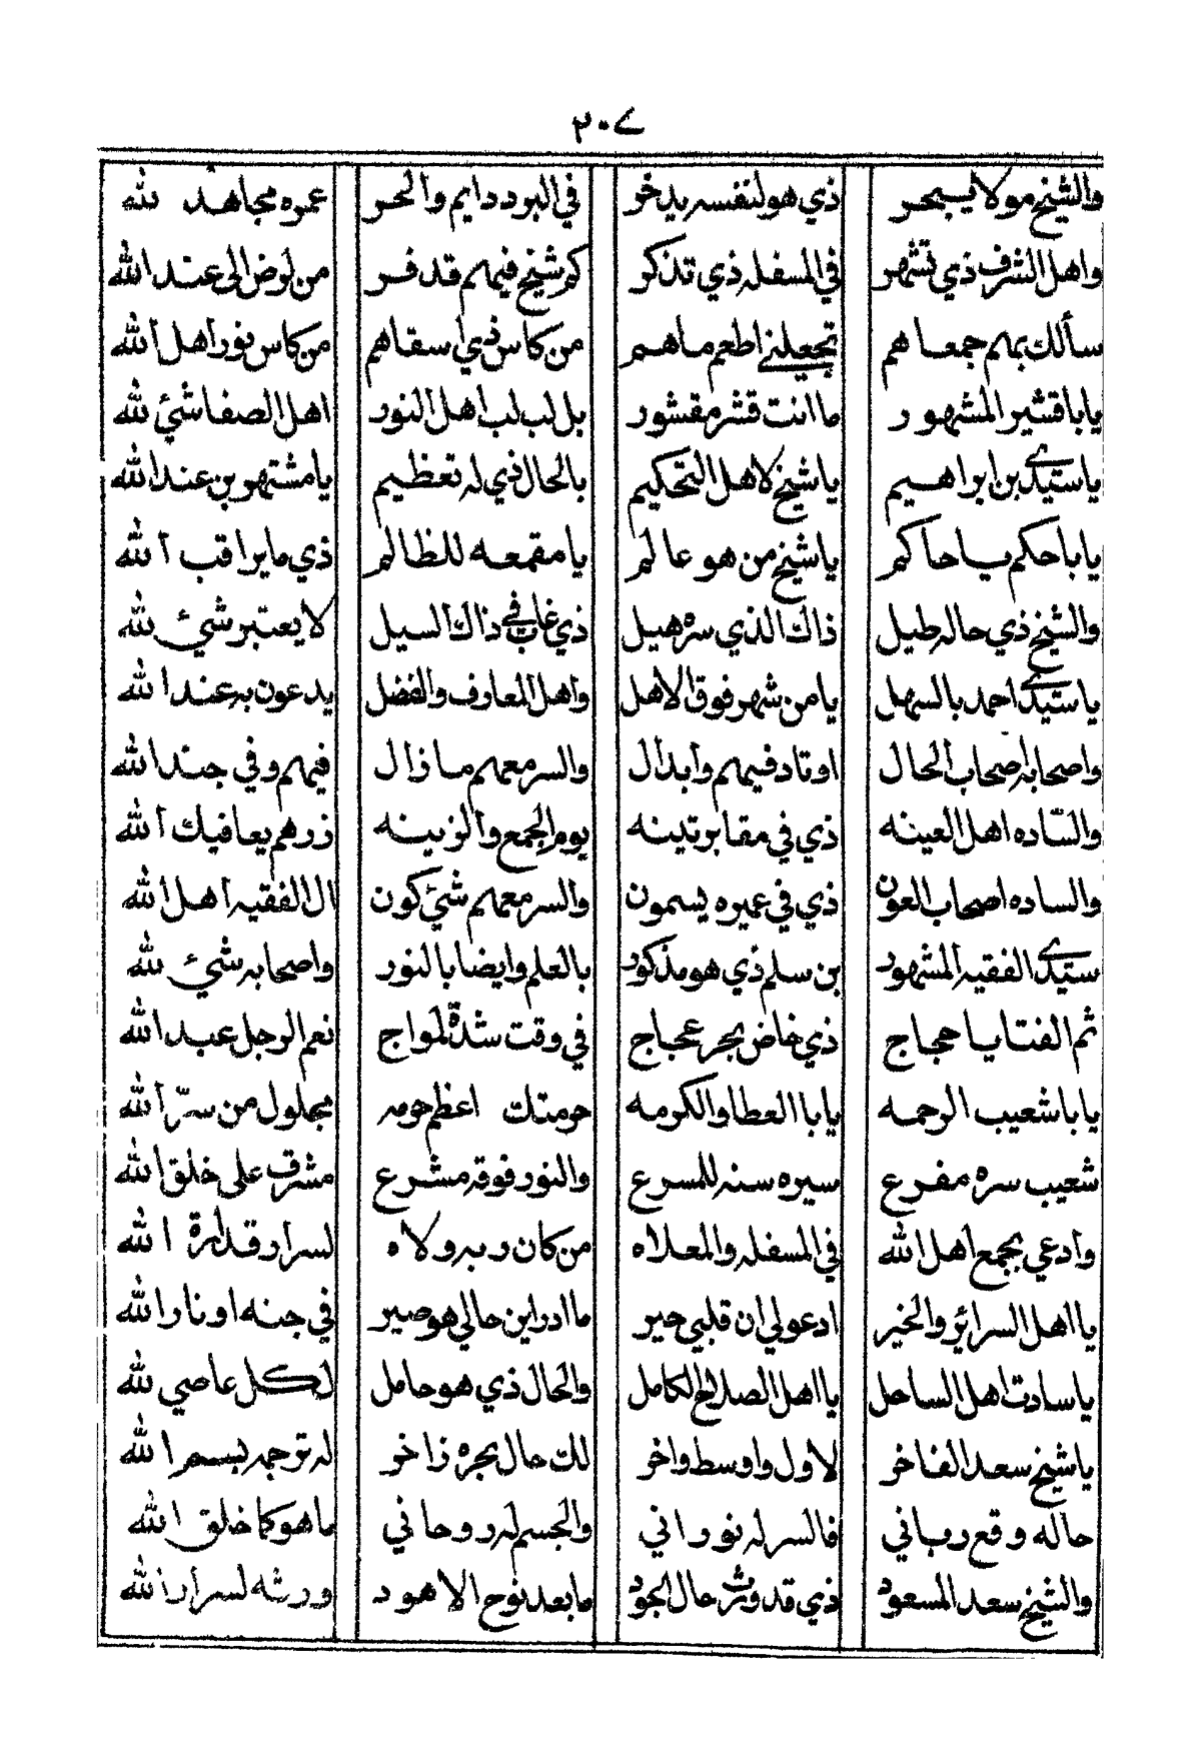 ٢٠٧
والشيخ مولا يبحر ذي هو لنفسه يدخر في البرد دايم والحر عمره مجاهد لله
واهل الشرف ذي تشهر في المسفله ذي تذكر كم شيخ فيهم قد فر من لوض الى عند الله
سألك بهم جمعا هم تجعلني اطعم ماهم من كاس ذي اسقاهم من كاس نور اهل الله
يا باقشير المشهور ما انت قشر مقشور بل لب لب اهل النور اهل الصفا شئ لله
يا سيدي بن ابراهيم يا شيخ لاهل التحكيم بالحال ذي له تعظيم يا مشتهر بن عند الله
يا باحكم يا حاكم يا شيخ من هو عالم يا مقمعه للظالم ذي ما يراقب الله
والشيخ ذي حاله طيل ذاك الذي سره هيل ذي غاب في ذاك السيل لا يعتبر شئ لله
يا سيدي احمد بالسهل يا من شهر فوق الاهل واهل المعارف والفضل يدعون به عند الله
واصحابه اصحاب الحال اوتاد فيهم وابدال والسر معهم ما زال فيهم وفي جند الله
والساده اهل العينه ذي في مقابر تينه يوم الجمع والزينه زرهم يعافيك الله
والساده اصحاب العون ذي في عميره يسمون والسر معهم شئ كون ال الفقيه اهل الله
سيدي الفقيه المشهور بن سلم ذي هو مذكور بالعلم وايضا بالنور واصحابه شئ لله
ثم الفتا يا حجاج ذي خاض بحر عجاج في وقت شدة لمواج نعم الرجل عبد الله
يا با شعيب الرحمه يا با العطا والكرمه حومتك اعظم حومه مجلول من سرّ الله
شعيب سره مفرع سيره سنه للمسرع والنور فوقه مشرع مشرف على خلق الله
وادعي بجمع اهل الله في المسفله والمعلاه من كان ربه ولاه لسرار قدرة الله
يا اهل السرائر والخير ادعو لي ان قلبي حير ما ادر اين حالي هو صير في جنه او نار الله
يا سادت اهل الساحل يا اهل الصلاح الكامل والحال ذي هو حامل لكل عاصي لله
يا شيخ سعد الفاخر لاول واوسط واخر لك حال بحره زاخر له توجه بسم الله
حاله وقع رباني فالسر له نوراني والجسم له روحاني ما هو كما خلق الله
والشيخ سعد المسعود ذي قد ورث حال الجود ما بعد نوح الا هود ورثه لسرار الله